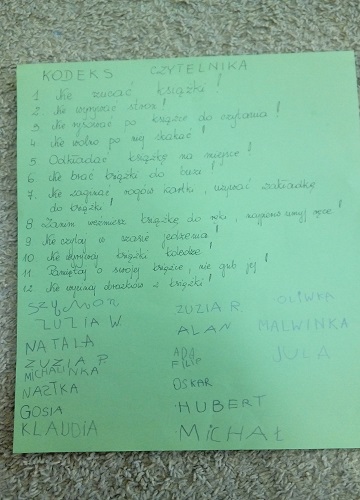 KODEKS CZYTELNIKA
1. Nie rzucać książki!
2. Nie wyrywać stron!
3 Nie rysować po książce do czytania!
4 Nie wolno po niej skakać!
5 Odkładać książkę na miejsce!
6 Nie brać książki do buzi!
7. Nie zaginać rogów kartki, używać zakładkę
do książki!
8 Zanim weźmiesz książkę do ręki, najpierw umyj ręce!
9 Nie czytaj w czasie jedzenia!
10 Nie wyrywaj książki koledze!
11 Pamiętaj o swojej książce, nie gub jej!
12 Nie wycinaj obrazków z książki!
SZYMON ZUZIA R. OLIWKA
ZUZIA W. ALAN MALWINKA
NATALA ADA JULA
ZUZIA P. FILIP
MICHALINKA OSKAR
NASTKA HUBERT
GOSIA
KLAUDIA MICHAŁ